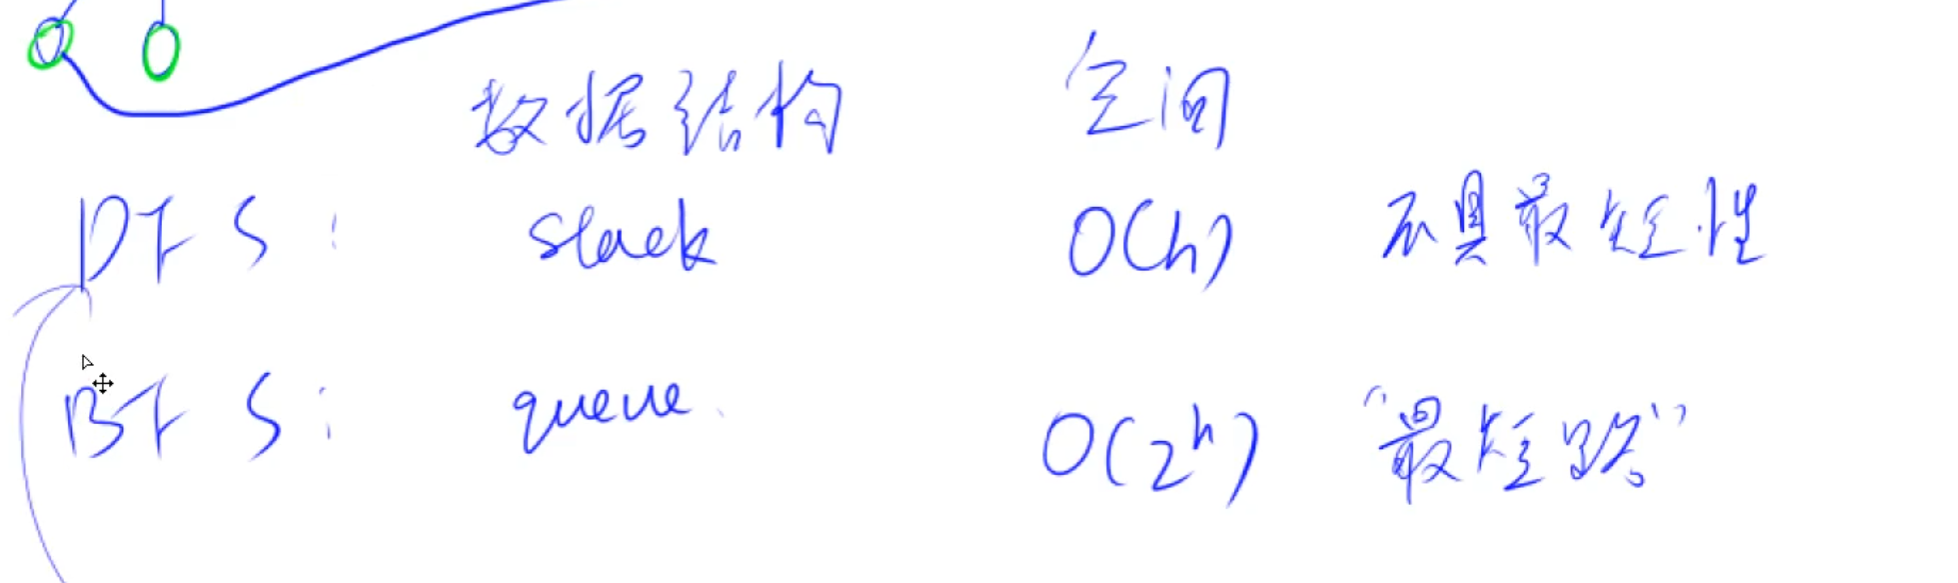 数据结构 空间
DFS: stack O(h) 不具最短性
BFS: queue O(2^h) "最短路"